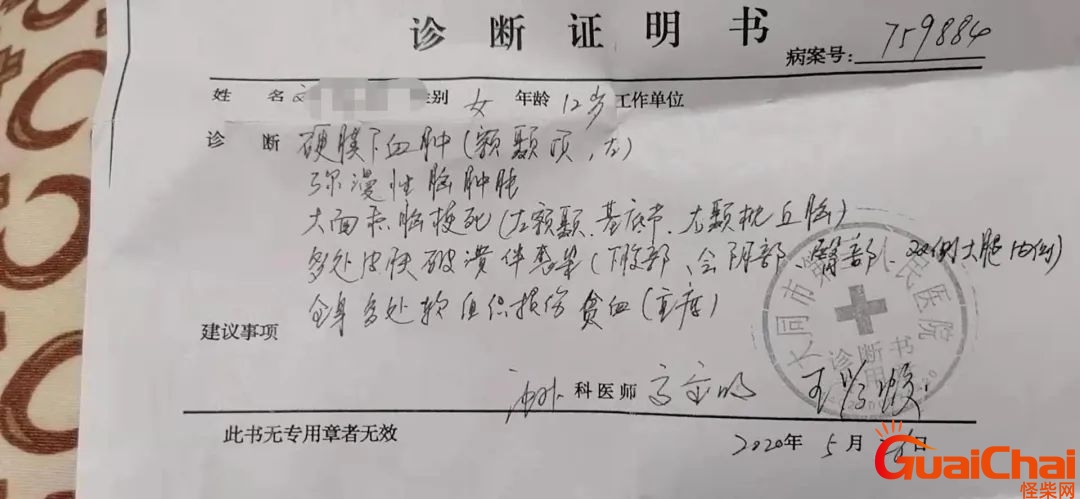 诊断证明书
病案号: 759884
姓名 性别 女 年龄 12岁 工作单位
诊断 硬膜下血肿(额颞顶、左)
弥漫性脑肿胀
大面积脑梗死(左额颞、基底节、右颞枕丘脑)
多处皮肤破溃伴感染(下腹部、会阴部、臀部、双侧大腿内侧)
全身多处软组织损伤 贫血(重度)
建议事项
大同市第 人民医院
诊断书
专用章
科医师
此书无专用章者无效
2020年5月 日
GuaiChai
怪柴网